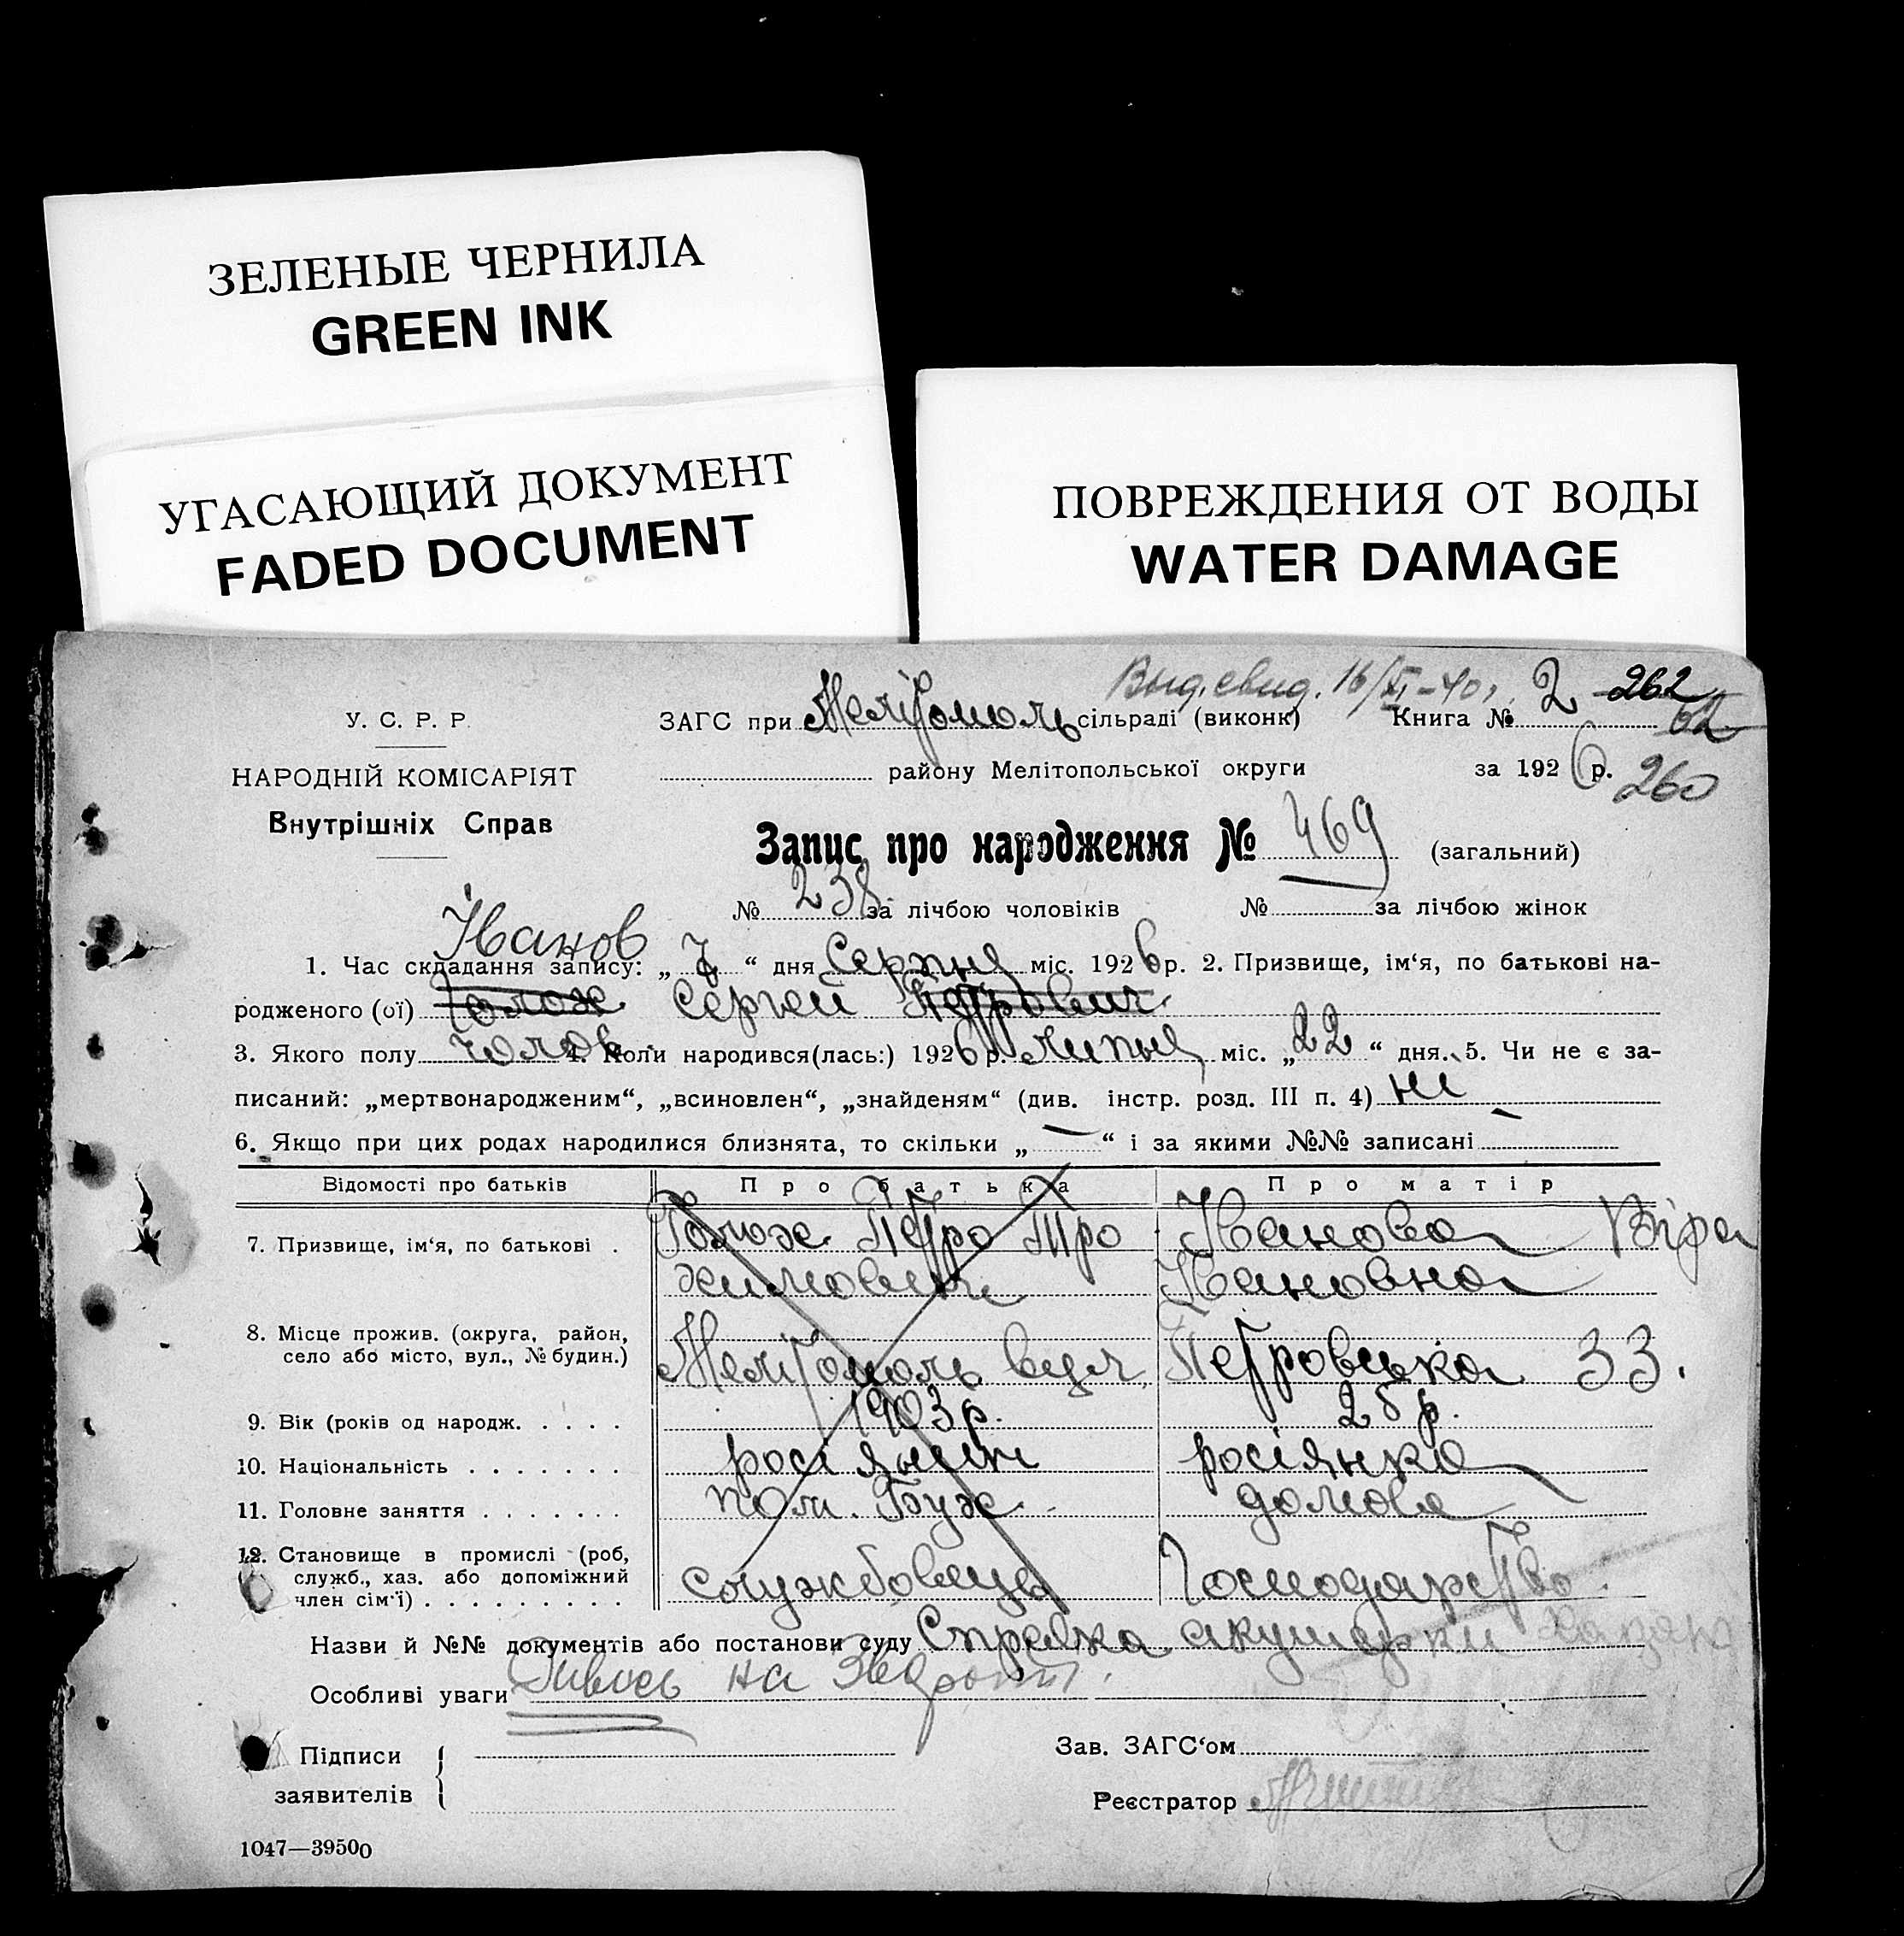 ЗЕЛЕНЫЕ ЧЕРНИЛА
GREEN INK
УГАСАЮЩИЙ ДОКУМЕНТ
FADED DOCUMENT
ПОВРЕЖДЕНИЯ ОТ ВОДЫ
WATER DAMAGE
Выд. свид. 16/XI-40г. 2 262
У. С. Р. Р. ЗАГС при Мелітополь сільраді (виконк) Книга № 62
району Мелітопольської округи за 1926 р. 260
НАРОДНІЙ КОМІСАРІЯТ
Внутрішніх Справ
Запис про народження № 469 (загальний)
№ 238 за лічбою чоловіків № за лічбою жінок
Іванов
1. Час складання запису: „7“ дня Серпня міс. 1926 р. 2. Призвище, ім‘я, по батькові на-
родженого (ої) Сергей Петрович
3. Якого полу чолов. 4. Коли народився(лась:) 1926 р. липня міс. „22“ дня. 5. Чи не є за-
писаний: „мертвонародженим“, „всиновлен“, „знайденям“ (див. інстр. розд. III п. 4) ні
6. Якщо при цих родах народилися близнята, то скільки „—“ і за якими №№ записані —
Відомості про батьків Про батька Про матір
7. Призвище, ім‘я, по батькові . Петро Тро Іванова Віра
химович Івановна
8. Місце прожив. (округа, район,
село або місто, вул., № будин.) Мелітополь вул. Петровська 33.
9. Вік (років од народж. . . . . 1903 р. 28 р.
10. Національність . . . . . . . росіянин росіянка
11. Головне заняття . . . . . . . пом. Бух. домове
12. Становище в промислі (роб,
служб., хаз. або допоміжний
член сім‘ї) . . . . . . . . . службовець господарство
Назви й №№ документів або постанови суду Справка акушерки
Особливі уваги на
Підписи
заявителів
Зав. ЗАГС‘ом
Реєстратор
1047—39500